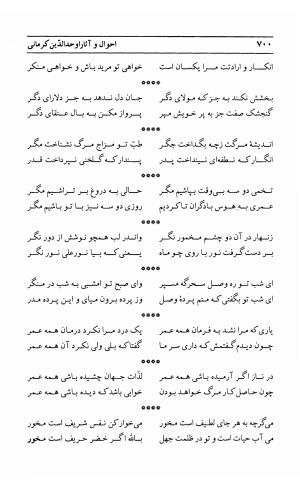 ۷۰۰ احوال و آثار اوحدالدّین کرمانی
انکار و ارادتت مرا یکسان است خواهی تو مرید باش و خواهی منکر
****
بخشش نکند به جز که مولای دگر جان دل ندهد به جز دلارای دگر
گنجشک صفت جز به پر خویش مپر پرواز مکن به بال عنقای دگر
****
اندیشهٔ مرگت زچه بگداخت جگر طبّ تو مزاج مرگ نشناخت مگر
انگار که نطفه‌ای نینداخت پدر پندار که گلخنی نپرداخت قدر
****
تخمی دو سه بی‌وقت بپاشیم مگر حالی به دروغ بر تراشیم مگر
عمری به هوس با دگران تا کردیم روزی دو سه نیز با تو باشیم مگر
****
زنهار در آن دو چشم مخمور نگر واندر لب همچو نوشش از دور نگر
بر دست گرفت نور با روی چو ماه یعنی که بیا نور علی نور نگر
****
ای شب تو ره وصل سحرگه مسپر وای صبح تو امشبی به شب در منگر
ای شب تو بگفتی که منم پردهٔ وصل وز پرده برون میای و این پرده مدر
****
یاری که مرا نشد به فرمان همه عمر یک درد مرا نکرد درمان همه عمر
چون دیدم گفتمش که داری سر ما گفتا که بلی ولی نکرد آن همه عمر
****
در ناز اگر آرمیده باشی همه عمر لذّات جهان چشیده باشی همه عمر
چون حاصل کار مرگ خواهد بودن خوابی باشد که دیده باشی همه عمر
****
می‌گرچه به هر جای لطیف است مخور می‌خوار کن نفس شریف است مخور
می آب حیات است و تو در ظلمت جهل بالله اگر خضر حریف است مخور